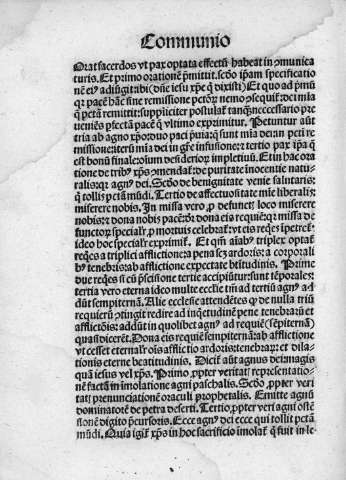 Communio
Orat sacerdos vt pax optata effectū habeat in cōmunica
turis. Et primo orationē p̄mittit. scďo ip̄am specificatio
nē eiꝰ adiūgit ibi (dn̄e iesu xp̄e q̇ dixisti) Et quo ad p̄mū
qꝛ pacē hāc sine remissione petōꝝ nemo ꝯsequit̄: dei mīa
q̄ petā remittit: suppliciter postulat̄ tanq̄ꝫ neccessario pre
ueniēs psectā pacē q̄ vltimo exprimitur. Petuntur aūt
tria ab agno xp̄o: duo paci puia: qꝛ sunt mīa dei: in peti re
missione: iterū mīa dei in gr̄e infusione: tertio pax ip̄a q̄
est bonū finale: oīum desiderioꝝ impletiuū. Et in hac orā
tione de tribꝰ xp̄s ꝯmendat̄: de puritate inocentie natu
ralis: qꝛ agnꝰ dei. Scďo de benignitate venie salutaris:
q̄ tollis pctā mūdi. Tertio de affectuositate mīe liberalis:
miserere nobis. In missa vero ꝓ defunct̄: loco miserere
nobis: ⁊ dona nobis pacē: dōr: dona eis requiē: qꝛ missa de
functoꝝ specialr̄ ꝓ mortuis celebrat̄: vt eis reqēs īpetret̄:
ideo hoc specialr̄ exprimit̄. Et qm̄ aīabꝰ triplex optat̄
reqēs a triplici afflictione: a pena scꝫ ardoris: a corporali
bꝰ tenebris: ab afflictione expectate btītudinis. Prime
due reqēs si cū p̄cisione tertie accipiūtur: sunt tēporales:
tertia vero eterna ideo multe ecclīe tm̄ ad tertiū agnꝰ ad
dūt sempiternā. Alie ecclesie attendētes ꝙ de nulla triū
requierū ꝯtingit redire ad inq̇etudinē pene tenebrarū et
afflictōis: addūt in quolibet agnꝰ ad requiē (sēpiternā)
quasi diceret̄. Dona eis requiē sempiternā: ab afflictione
vt cesset eternalr̄ oīs afflictio ardoris: tenebraꝝ: et dila-
tionis eterne beatitudinis. Dicit̄ aūt agnus dei: magis
quā iesus vel xp̄s. Primo ꝓpter veritat̄ representatio-
nē factā in imolatione agni paschalis. Scďo ꝓpter veri
tat̄ prenunciationē oraculi prophetalis. Emitte agnū
dominatorē de petra deserti. Tertio ꝓpter veri agni ostē
sionē digito p̄cursoris. Ecce agnꝰ dei ecce qui tollit pctā
mūdi. Quia igit̄ xp̄s in hoc sacrificio imolat̄ q̄ fuit in le-